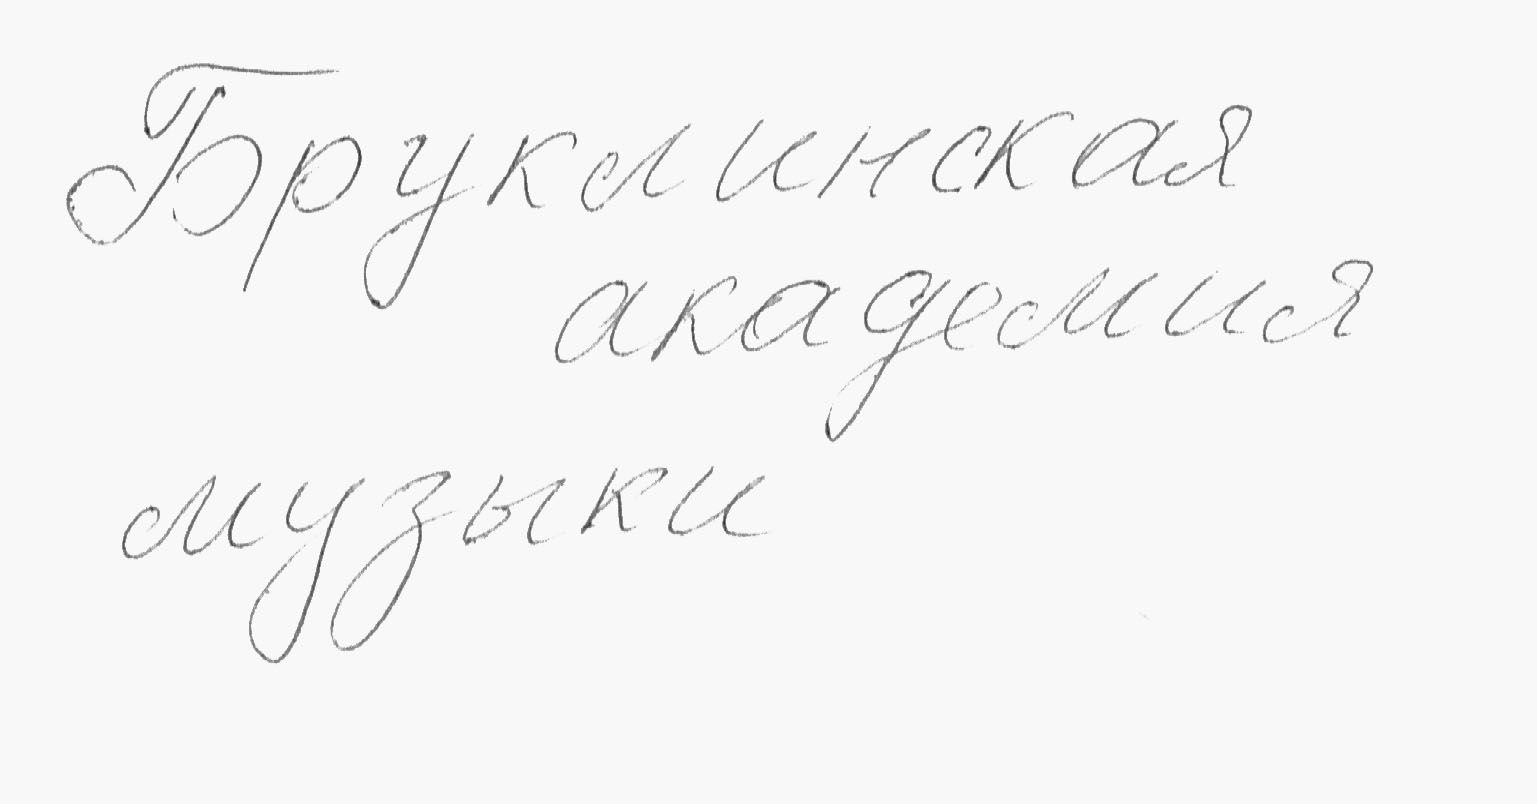 Бруклинская
академия
музыки